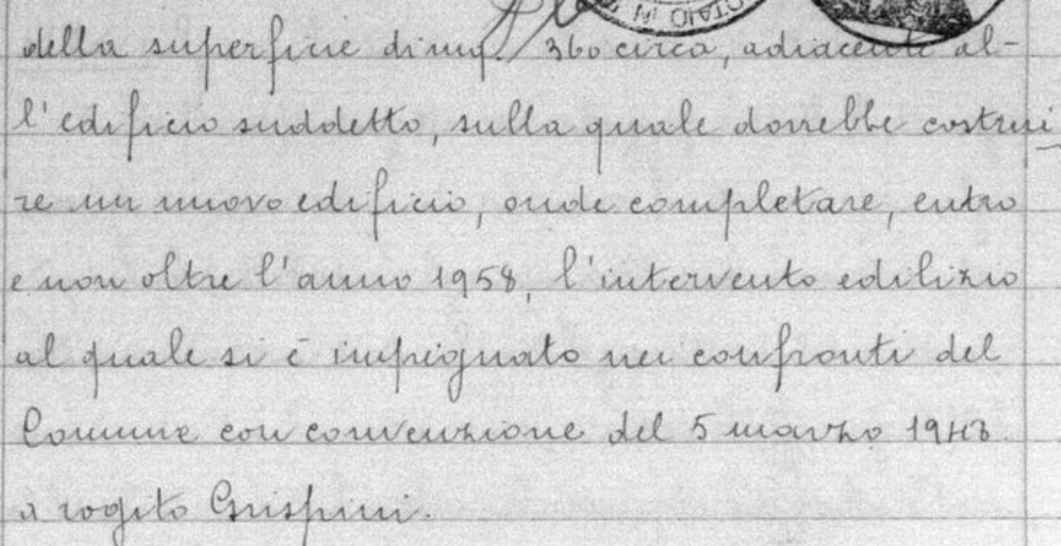 della superficie di mq. 360 circa, adiacente al-
l'edificio suddetto, sulla quale dovrebbe costrui
re un nuovo edificio, onde completare, entro
e non oltre l'anno 1958, l'intervento edilizio
al quale si è impegnato nei confronti del
Comune con convenzione del 5 marzo 1948
a rogito